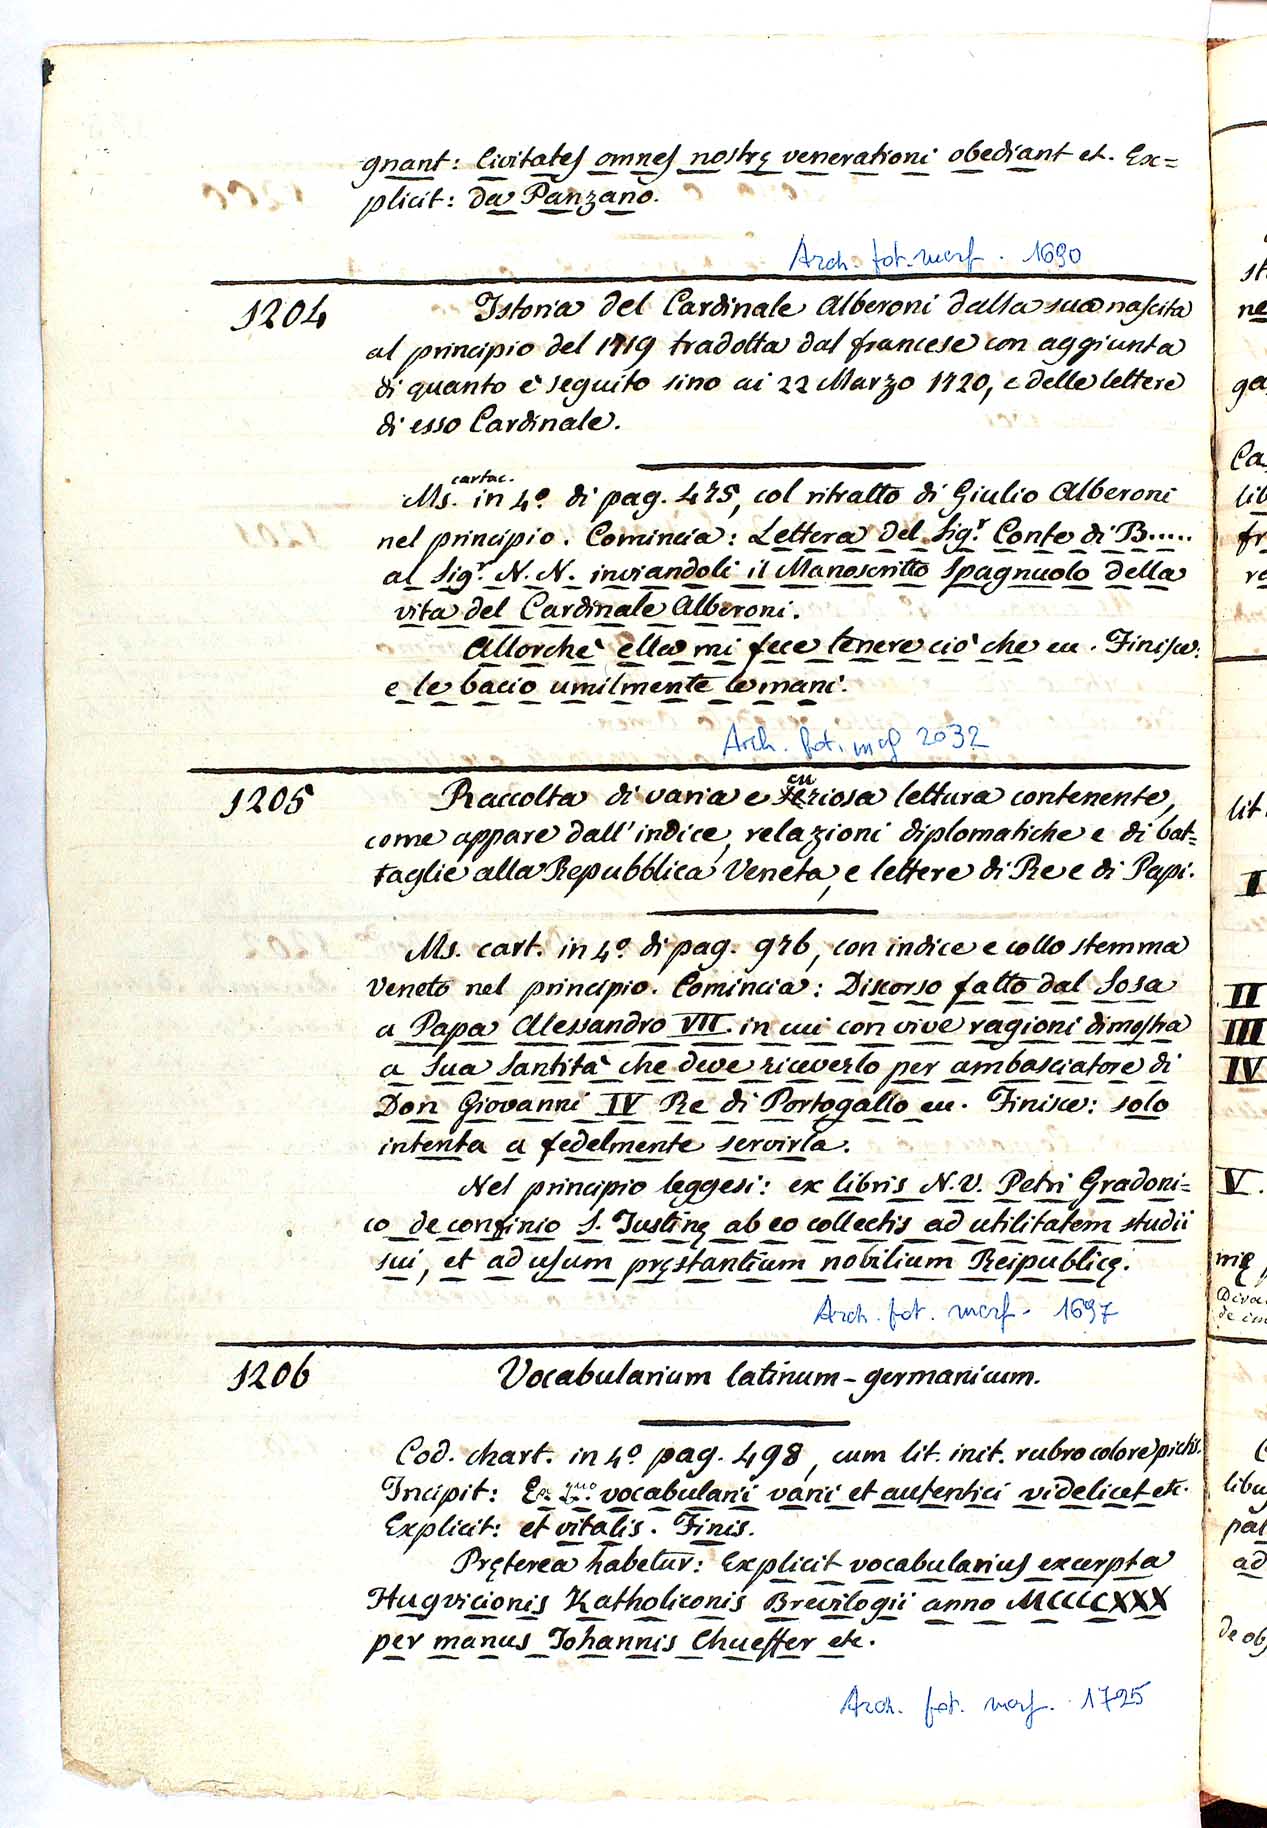 gnant: Civitates omnes nostrę venerationi obediant et. Ex=
plicit: da Panzano.
Arch. fot. mcrf. 1690
1204 Istoria del Cardinale Alberoni dalla sua nascita
al principio del 1719 tradotta dal francese con aggiunta
di quanto è seguito sino ai 22 Marzo 1720, e delle lettere
di esso Cardinale.
Ms. cartac. in 4º. di pag. 475, col ritratto di Giulio Alberoni
nel principio. Comincia: Lettera del Sigʳ. Conte di B.....
al Sigʳ. N. N. inviandoli il Manoscritto Spagnuolo della
vita del Cardinale Alberoni.
Allorchè ella mi fece tenere ciò che ec. Finisce:
e le bacio umilmente le mani.
Arch. fot. mcf 2032
1205 Raccolta di varia e curiosa lettura contenente,
come appare dall'indice, relazioni diplomatiche e di bat=
taglie alla Repubblica Veneta, e lettere di Re e di Papi.
Ms. cart. in 4º. di pag. 976, con indice e collo stemma
Veneto nel principio. Comincia: Discorso fatto dal Sosa
a Papa Alessandro VII in cui con vive ragioni dimostra
a Sua Santità che deve riceverlo per ambasciatore di
Don Giovanni IV Re di Portogallo ec. Finisce: solo
intenta a fedelmente servirla.
Nel principio leggesi: ex libris N.V. Petri Gradoni=
co de confinio S. Justinę ab eo collectis ad utilitatem studii
sui, et ad usum pręstantium nobilium Reipublicę.
Arch. fot. mcrf. 1697
1206 Vocabularium latinum-germanicum.
Cod. chart. in 4º. pag. 498, cum lit. init. rubro colore pictis.
Incipit: Ex quo vocabularii varii et autentici videlicet etc.
Explicit: et vitalis. Finis.
Pręterea habetur: Explicit vocabularius excerpta
Hugvicionis Katholiconis Brevilogii anno MCCCCXXX
per manus Johannis Chueffer etc.
Arch. fot. mcrf. 1725